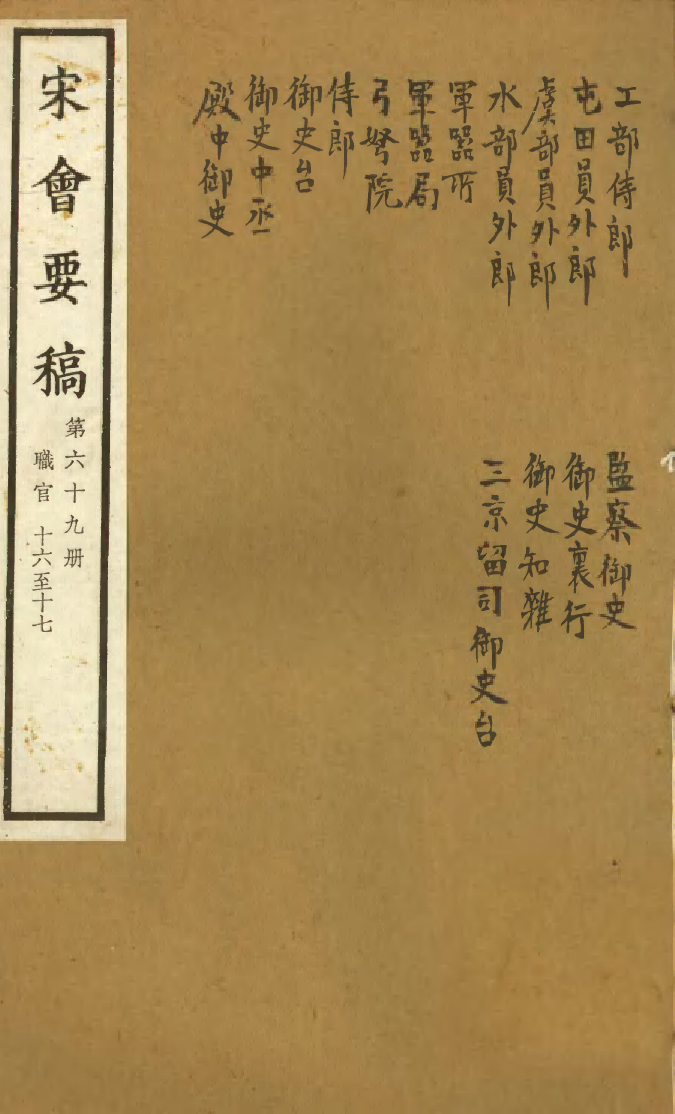 工部侍郎
屯田員外郎
虞部員外郎
水部員外郎
軍器所
軍器局
弓弩院
侍郎
御史台
御史中丞
殿中御史
監察御史
御史裏行
御史知雜
三京留司御史台
宋會要稿
第六十九册
職官 十六至十七